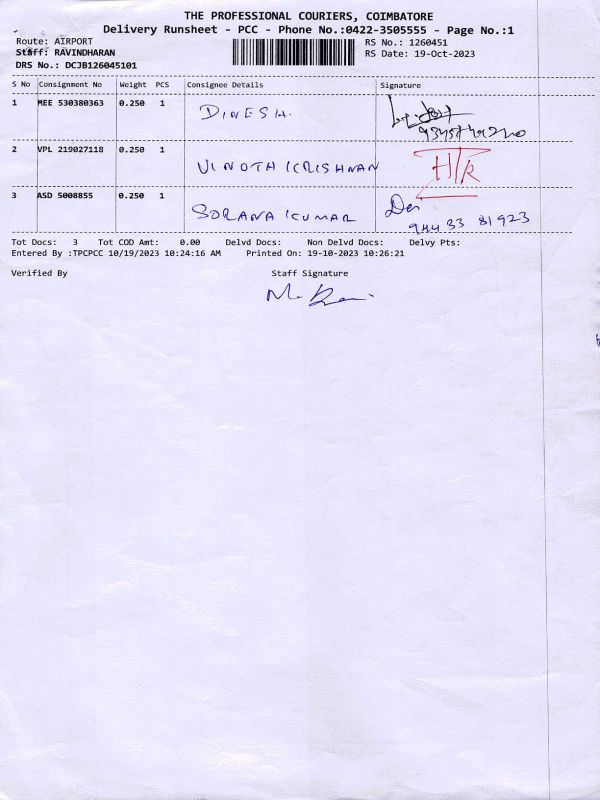 THE PROFESSIONAL COURIERS, COIMBATORE
Delivery Runsheet - PCC - Phone No.:0422-3505555 - Page No.:1
Route: AIRPORT
RS No.: 1260451
Staff: RAVINDHARAN
RS Date: 19-Oct-2023
DRS No.: DCJB126045101
S No Consignment No Weight PCS Consignee Details Signature
1 MEE 530380363 0.250 1 DINESH.
2 VPL 219027118 0.250 1 VINOTH KRISHNAN
3 ASD 5008855 0.250 1 SORANA KUMAR
944 33 81923
Tot Docs: 3 Tot COD Amt: 0.00 Delvd Docs: Non Delvd Docs: Delvy Pts:
Entered By :TPCPCC 10/19/2023 10:24:16 AM Printed On: 19-10-2023 10:26:21
Verified By Staff Signature